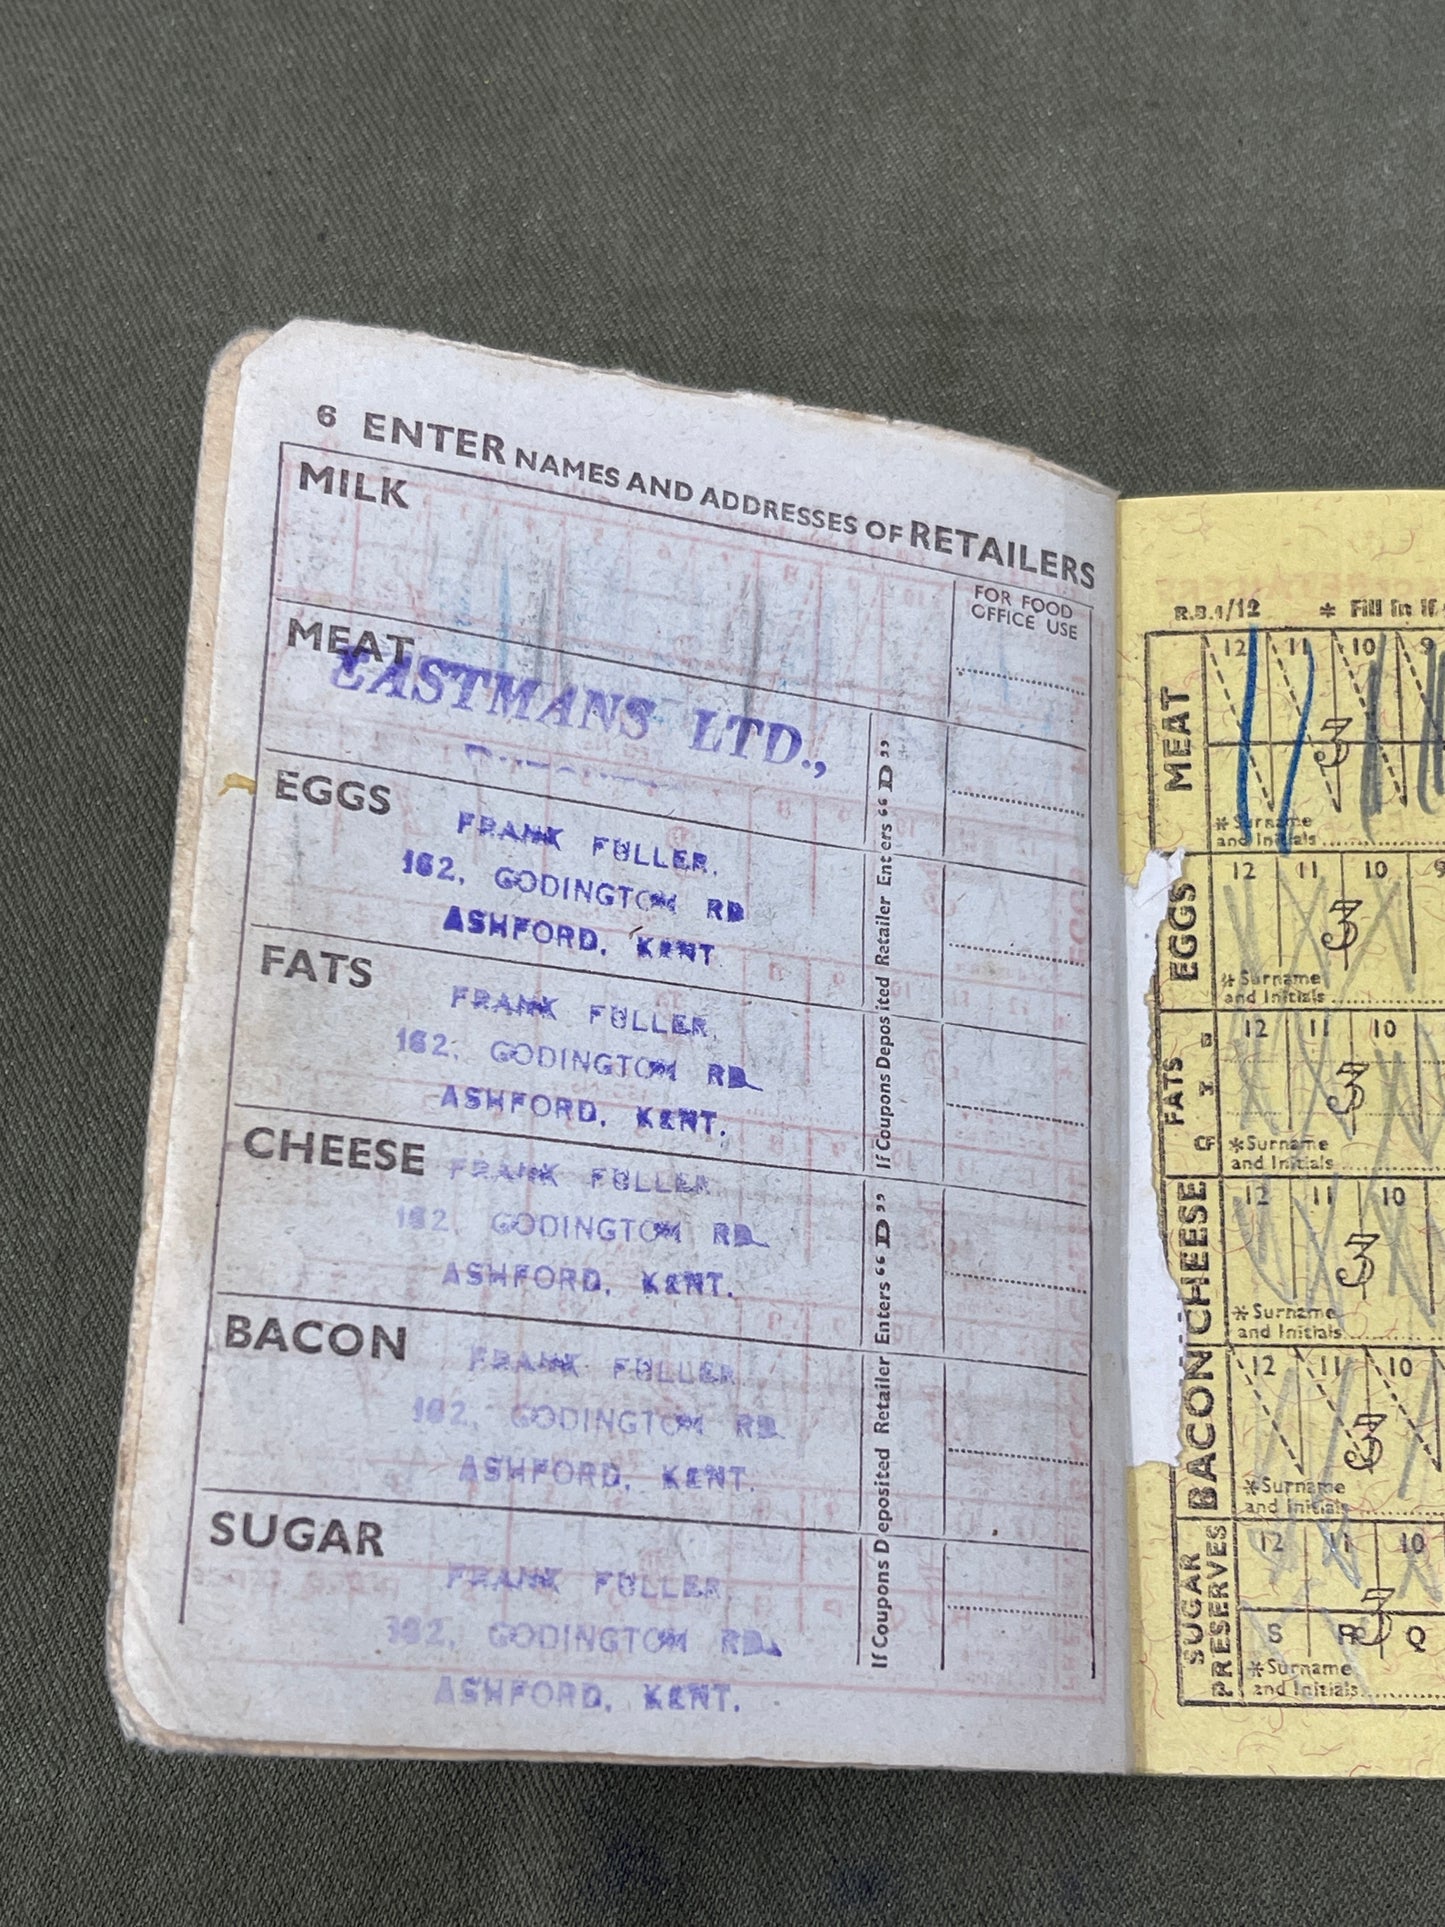 6 ENTER NAMES AND ADDRESSES OF RETAILERS
MILK
FOR FOOD
OFFICE USE
MEAT
EASTMANS LTD.,
EGGS
FRANK FULLER.
162, GODINGTON RD
ASHFORD, KENT
FATS
FRANK FULLER.
162, GODINGTON RD
ASHFORD, KENT.
If Coupons Deposited Retailer Enters "D"
CHEESE
FRANK FULLER
162, GODINGTON RD
ASHFORD, KENT.
BACON
FRANK FULLER.
162, GODINGTON RD
ASHFORD, KENT.
SUGAR
FRANK FULLER
162, GODINGTON RD.
ASHFORD, KENT.
If Coupons Deposited Retailer Enters "D"
R.B.1/12 * Fill in if
MEAT
12 11 10 9
3
* Surname
and Initials
EGGS
12 11 10 9
3
* Surname
and Initials
FATS
12 11 10
3
CF
* Surname
and Initials
CHEESE
12 11 10
3
* Surname
and Initials
BACON
12 11 10
3
* Surname
and Initials
SUGAR
PRESERVES
12 11 10
3
S R Q
* Surname
and Initials